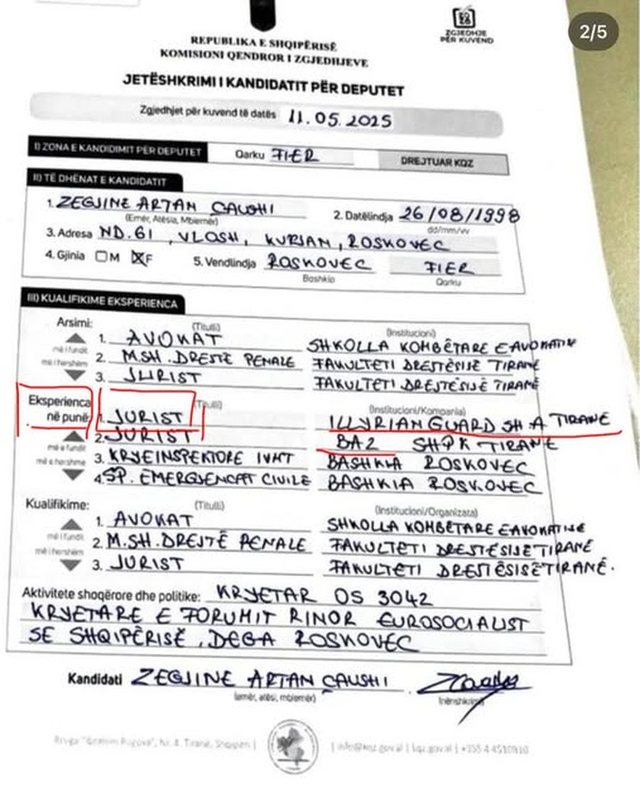 2/5
ZGJEDHJE
PËR KUVEND
REPUBLIKA E SHQIPËRISË
KOMISIONI QENDROR I ZGJEDHJEVE
JETËSHKRIMI I KANDIDATIT PËR DEPUTET
Zgjedhjet për kuvend të datës 11.05.2025
I) ZONA E KANDIDIMIT PËR DEPUTET Qarku FIER DREJTUAR KQZ
II) TË DHËNAT E KANDIDATIT
1. ZEGJINE ARTAN ÇAUSHI 2. Datëlindja 26/08/1998
(Emër, Atësia, Mbiemër) dd/mm/vv
3. Adresa ND.61, VLOSH, KURJAN, ROSKOVEC
4. Gjinia M F 5. Vendlindja ROSKOVEC FIER
Bashkia Qarku
III) KUALIFIKIME EKSPERIENCA
Arsimi: (Titulli) (Institucioni)
më i fundit 1. AVOKAT SHKOLLA KOMBËTARE E AVOKATINË
më i hershëm 2. M.SH. DREJTË PENALE FAKULTETI DREJTËSISË TIRANË
3. JURIST FAKULTETI DREJTËSISË TIRANË
Eksperienca (Titulli) (Institucioni/Kompania)
në punë: 1. JURIST ILLYRIAN GUARD SH.A TIRANË
2. JURIST BA2 SHPK TIRANË
më e fundit 3. KRYEINSPEKTORE IVMT BASHKIA ROSKOVEC
më e hershme 4. SP. EMERGJENCAT CIVILE BASHKIA ROSKOVEC
Kualifikime: (Titulli) (Institucioni/Organizata)
1. AVOKAT SHKOLLA KOMBËTARE E AVOKATINË
më i fundit 2. M.SH. DREJTË PENALE FAKULTETI DREJTËSISË TIRANË
më i hershëm 3. JURIST FAKULTETI DREJTËSISË TIRANË.
Aktivitete shoqërore dhe politike: KRYETAR OS 3042
KRYETARE E FORUMIT RINOR EUROSOCIALIST
SE SHQIPËRISË, DEGA ROSKOVEC
Kandidati ZEGJINE ARTAN ÇAUSHI
(emër, atësi, mbiemër) (nënshkrimi)
Rruga "Ibrahim Rugova", Nr. 4, Tiranë, Shqipëri | | info@kqz.gov.al | kqz.gov.al |